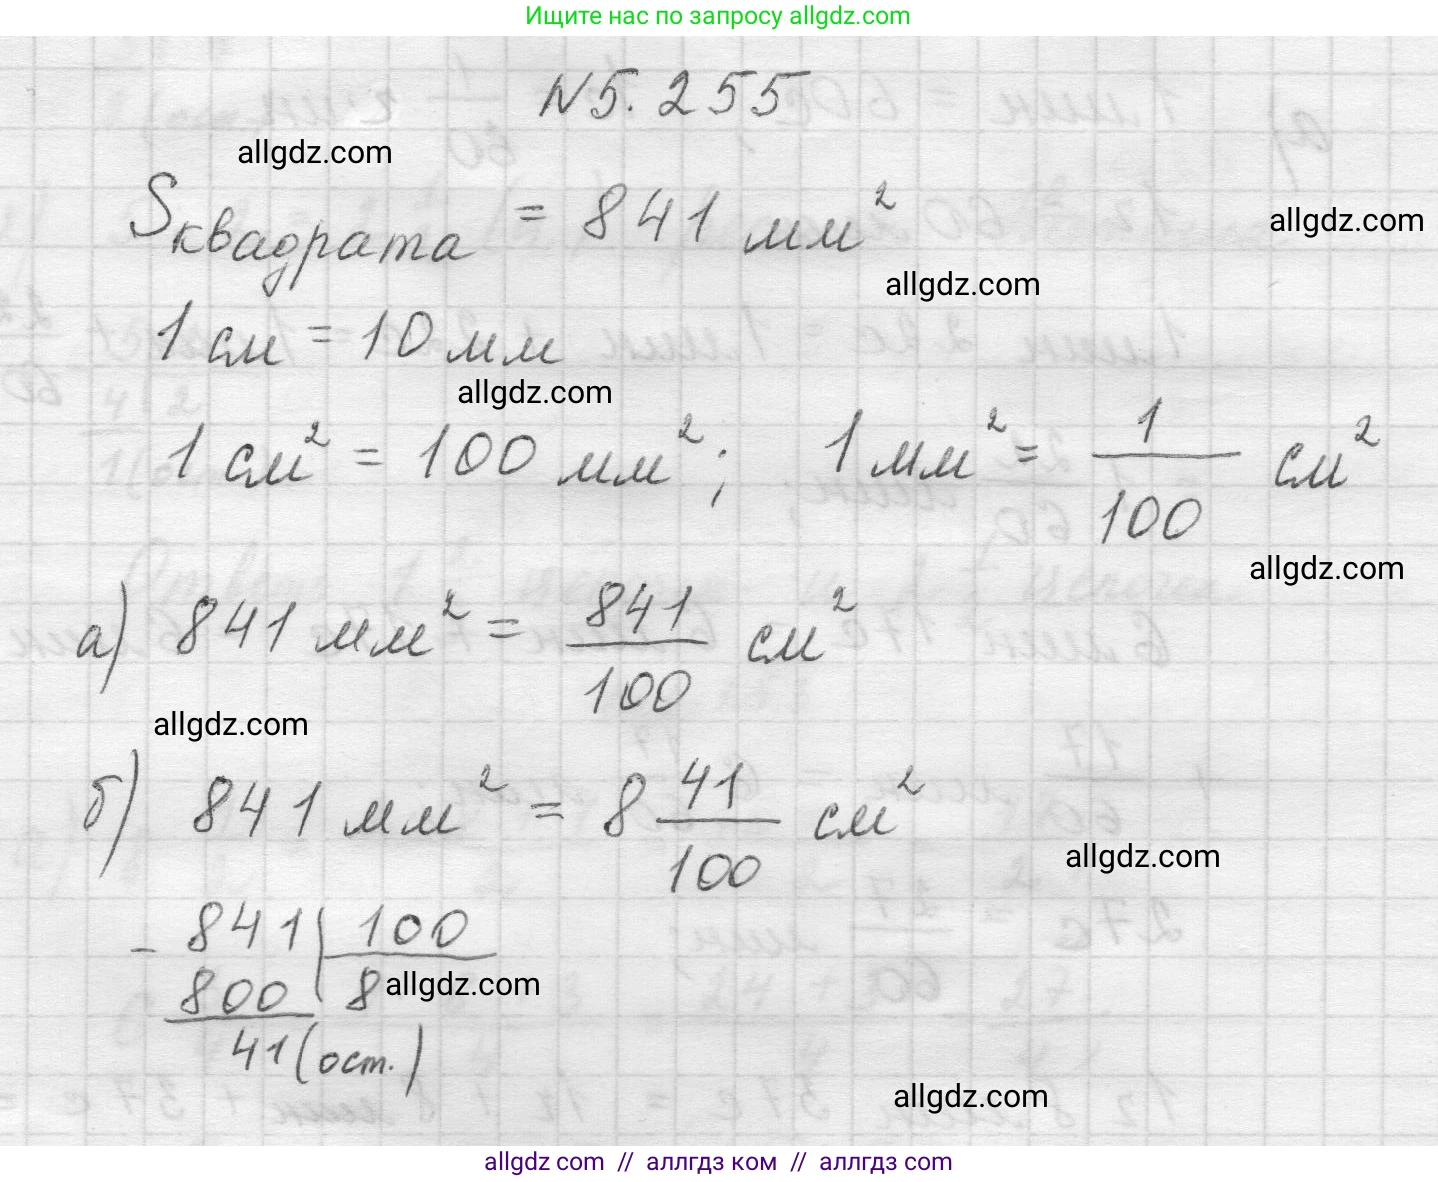 Ищите нас по запросу allgdz.com
N5.255
allgdz.com
Sквадрата = 841 мм²
allgdz.com
allgdz.com
1 см = 10 мм
allgdz.com
1 см² = 100 мм²; 1 мм² = 1/100 см²
allgdz.com
а) 841 мм² = 841/100 см²
allgdz.com
б) 841 мм² = 8 41/100 см²
allgdz.com
- 841 | 100
800 | 8
allgdz.com
41 (ост.)
allgdz.com
allgdz com // аллгдз ком // allgdz com